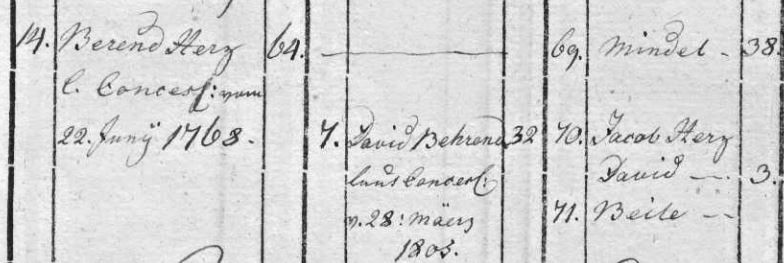 14. Berend Herz 64. 69. Mindel - 38.
l. Concess: vom
22. Junÿ 1768. 7. David Behrend 32 70. Jacob Herz
laut Concess: David - 3.
v. 28: Mäerz 71. Beile -
1805.